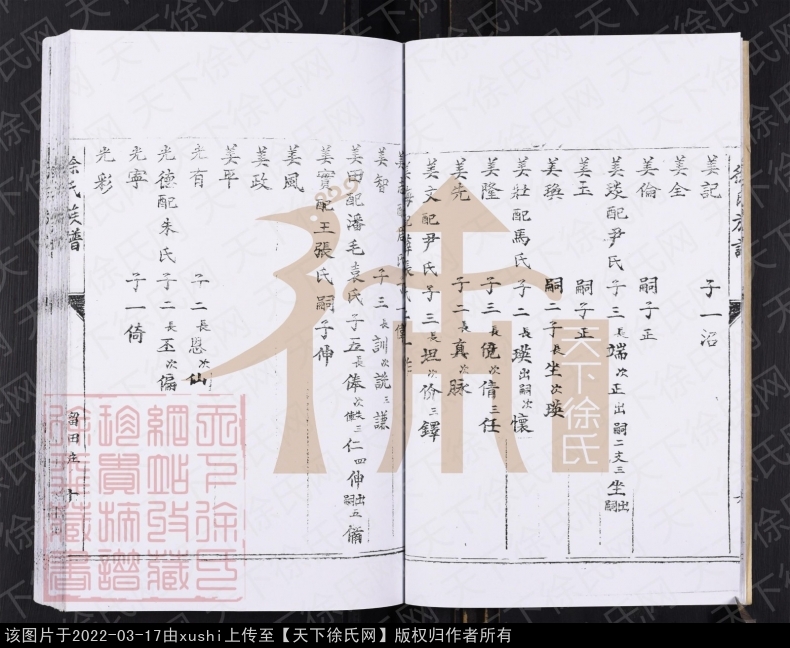 美記 子一沼
美全
美倫 嗣子正
美琰配尹氏子三長端次正出嗣二文三坐出嗣
美玉 嗣子正
美瑍 嗣二子長坐次瑛
美壯配馬氏子二長瑛出嗣次懷
美隆 子三長俛次倩三任
美先 子二長真次脉
美文配尹氏子三長坦次份三鐸
美智 子三長訓次説三謙
美田配潘毛袁氏子五長俸次三仁四伸出嗣五偹
美寳配王張氏嗣子伸
美風
美政
美平
光有 子二長恩次仙
光德配朱氏子二長丕次偏
光寧 子一倚
光彩
徐氏族譜
留田庄 十
天下徐氏
天下徐氏
網站收藏
珍貴擁譜
该图片于2022-03-17由xushi上传至【天下徐氏网】版权归作者所有